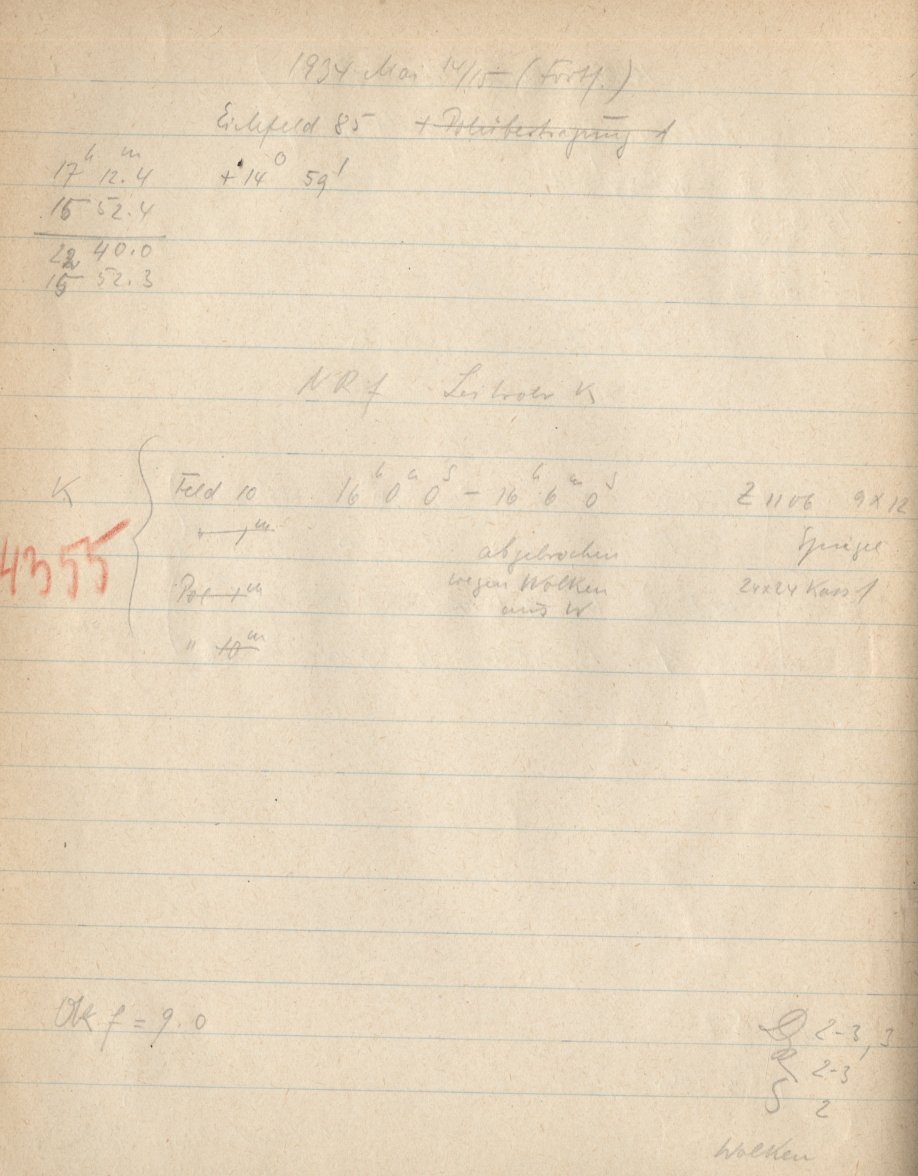 1934 Mai 14/15 (Forts.)
Eichfeld 85 + Polübertragung
17h 12m.4 +14° 59'
15 52.4
22 40.0
15 52.3
NR f Leitrohr K
K Feld 10 16h 0m 0s – 16h 6m 0s Z 1106 9x12
" 1m abgebrochen Spiegel
4355
Pol 1m wegen Wolken 24x24 Kass f
" 10m aus W
Ok f = 9.0
D 2-3, 3
R 2-3
S 2
Wolken